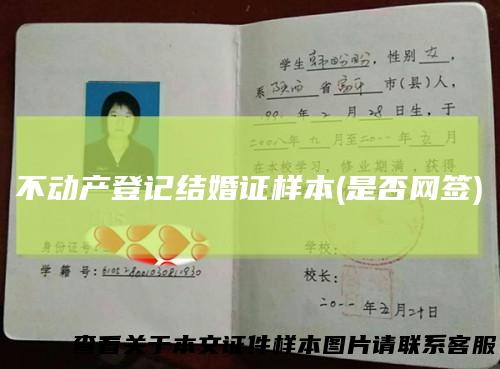 学生 韩盼盼，性别 女，
系 陕西 省 富平 市(县)人，
1991年 2 月 28 日生，于
二00八年 九 月至二0一一年 五 月
在本校学习，修业期满，获得
不动产登记结婚证样本(是否网签)
身份证号:
学籍号:
学校:
校长:
二0一一年五月二十日
查看关于本文证件样本图片请联系客服